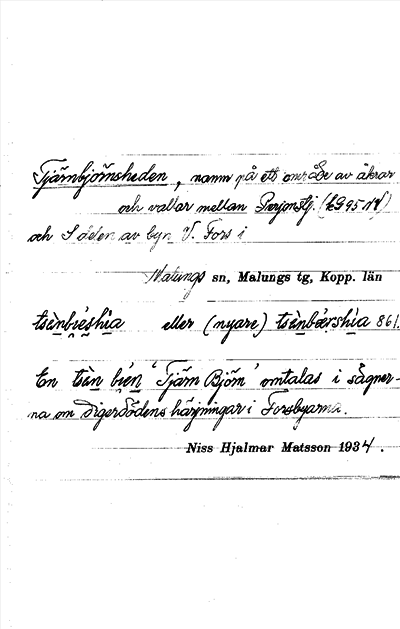 Tjärnbjörnsheden, namn på ett område av åkrar
och vallar mellan
och Söden av byn V. Fors i
Malungs sn, Malungs tg, Kopp. län
eller (nyare) 861.
En tsen bien 'Tjärn Björn' omtalas i sägner-
na om digerdödens härjningar i Forsbyarna.
Niss Hjalmar Matsson 1934.